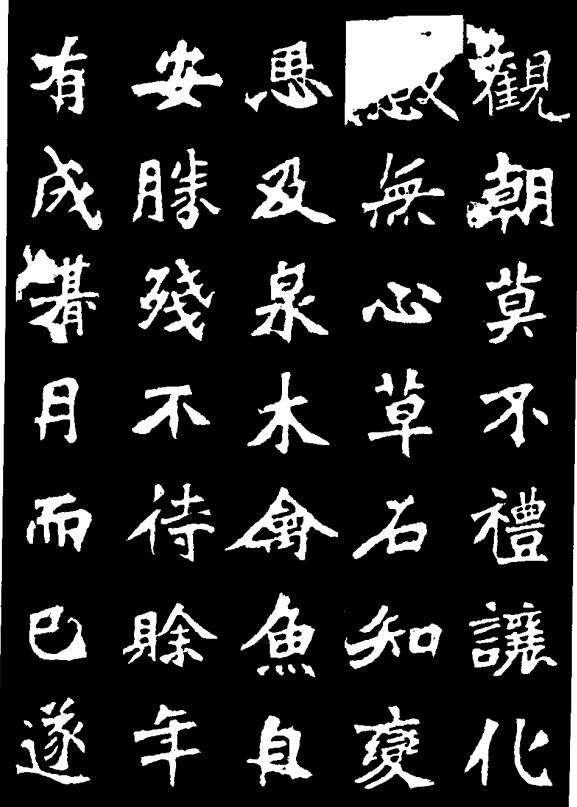 觀朝莫不禮讓化
無心草石知變
恩及泉木禽魚自
安勝殘不待賒年
有成朞月而已遂